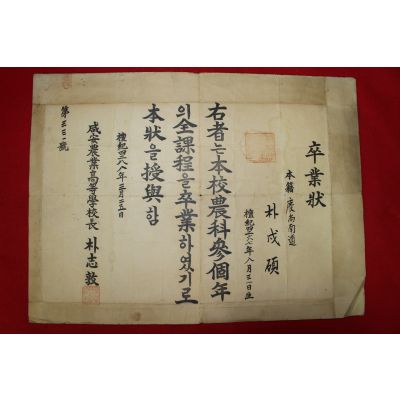 卒業狀
本籍 慶尚南道
朴成碩
檀紀四二六六年八月二一日生
右者는本校農科參個年
의全課程을卒業하였기로
本狀을授與함
檀紀四二八八年三月二五日
咸安農業高等學校長 朴志敦
第三三一號